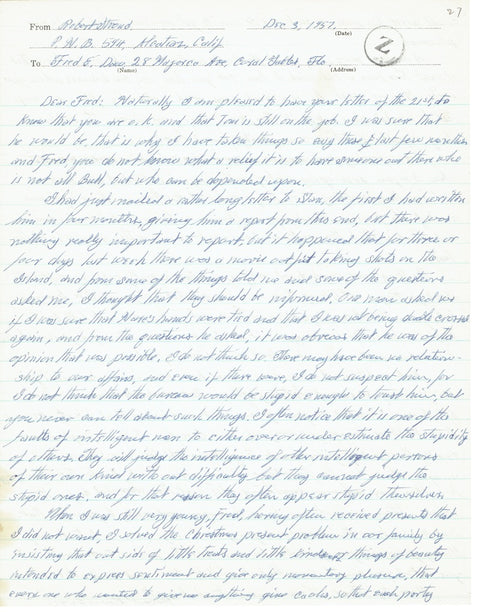 27
From Robert Stroud Dec 3, 1957.
(Date)
P.M.B. 594, Alcatraz, Calif
Z
To Fred E. Daw, 28 Majorca Ave, Coral Gables, Fla.
(Name) (Address)
Dear Fred: Naturally I am pleased to have your letter of the 21st, to
know that you are o.k. and that Tom is still on the job. I was sure that
he would be, that is why I have taken things so easy these last few months
and Fred, you do not know what a relief it is to have someone out there who
is not all Bull, but who can be depended upon.
I had just mailed a rather long letter to Stan, the first I had written
him in four months, giving him a report from this end, but there was
nothing really important to report, but it happened that for three or
four days last week there was a movie outfit taking shots on the
Island, and from some of the things told me and some of the questions
asked me, I thought that they should be informed. One man asked me
if I was sure that hands were tied and that I was not being double crossed
again, and from the questions he asked, it was obvious that he was of the
opinion that was possible. I do not think so. There may have been no relation-
ship to our affairs, and even if there were, I do not suspect him, for
I do not think that the bureau would be stupid enough to trust him, but
you never can tell about such things. I often notice that it is one of the
faults of intelligent men to either over or under estimate the stupidity
of others. They will judge the intelligence of other intelligent persons
of their own kind without difficulty but they cannot judge the
stupid ones, and for that reason they often appear stupid themselves
When I was still very young, Fred, having often received presents that
I did not want, I solved the Christmas present problem in our family by
insisting that out side of little treats and little things of beauty
intended to express sentiment and give only momentary pleasure, that
every one who wanted to give me anything give cash, so that each party